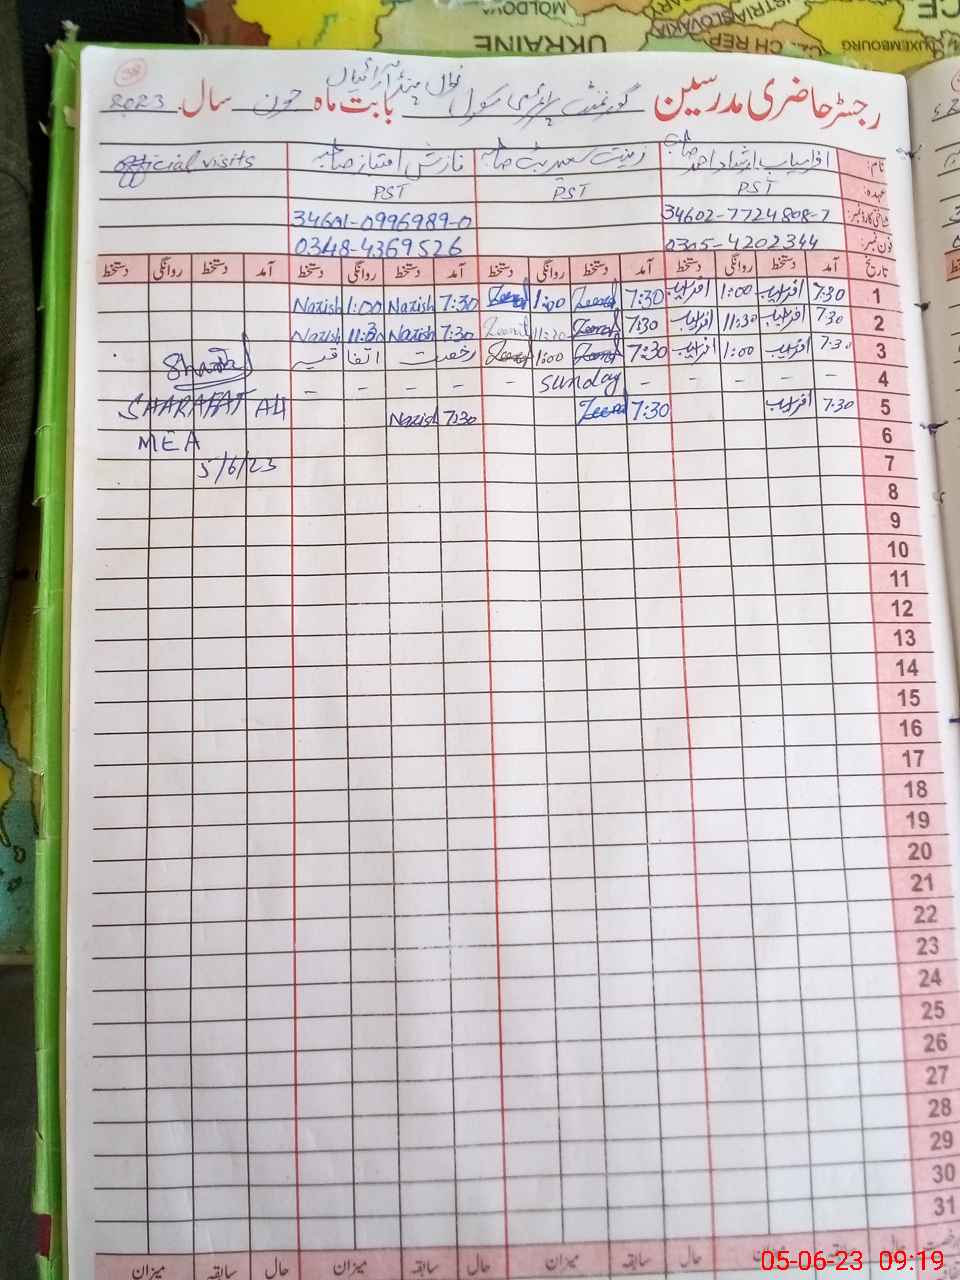 MOLDOVA
UKRAINE
CH REP
LUXEMBOURG
رجسٹر حاضری مدرسین گورنمنٹ پرائمری سکول بابت ماہ جون سال 2023
38
نام: افراسیاب ارشاد احمد صاحب زینت سعید بٹ صاحبہ نازش امتیاز صاحبہ official visits
عہدہ: PST PST PST
شناختی کارڈ نمبر: 34602-7724808-7 34601-0996989-0
فون نمبر: 0305-4202344 0348-4369526
تاریخ آمد دستخط روانگی دستخط آمد دستخط روانگی دستخط آمد دستخط روانگی دستخط آمد دستخط روانگی دستخط
1 7:30 افراسیاب 1:00 افراسیاب 7:30 Zeenat 1:00 Zeenat 7:30 Nazish 1:00 Nazish
2 7:30 افراسیاب 11:30 افراسیاب 7:30 Zeenat 11:30 Zeenat 7:30 Nazish 11:30 Nazish
3 7:30 افراسیاب 1:00 افراسیاب 7:30 Zeenat 1:00 Zeenat رخصت اتفاقیہ
4 - - - - sunday - - - - -
5 7:30 افراسیاب 7:30 Zeenat 7:30 Nazish
SHARAFAT ALI
6
MEA
7
5/6/23
8
9
10
11
12
13
14
15
16
17
18
19
20
21
22
23
24
25
26
27
28
29
30
31
حال سابقہ میزان حال سابقہ میزان حال سابقہ میزان
05-06-23 09:19